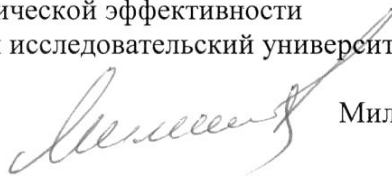 ической эффективности
исследовательский университ
Мил